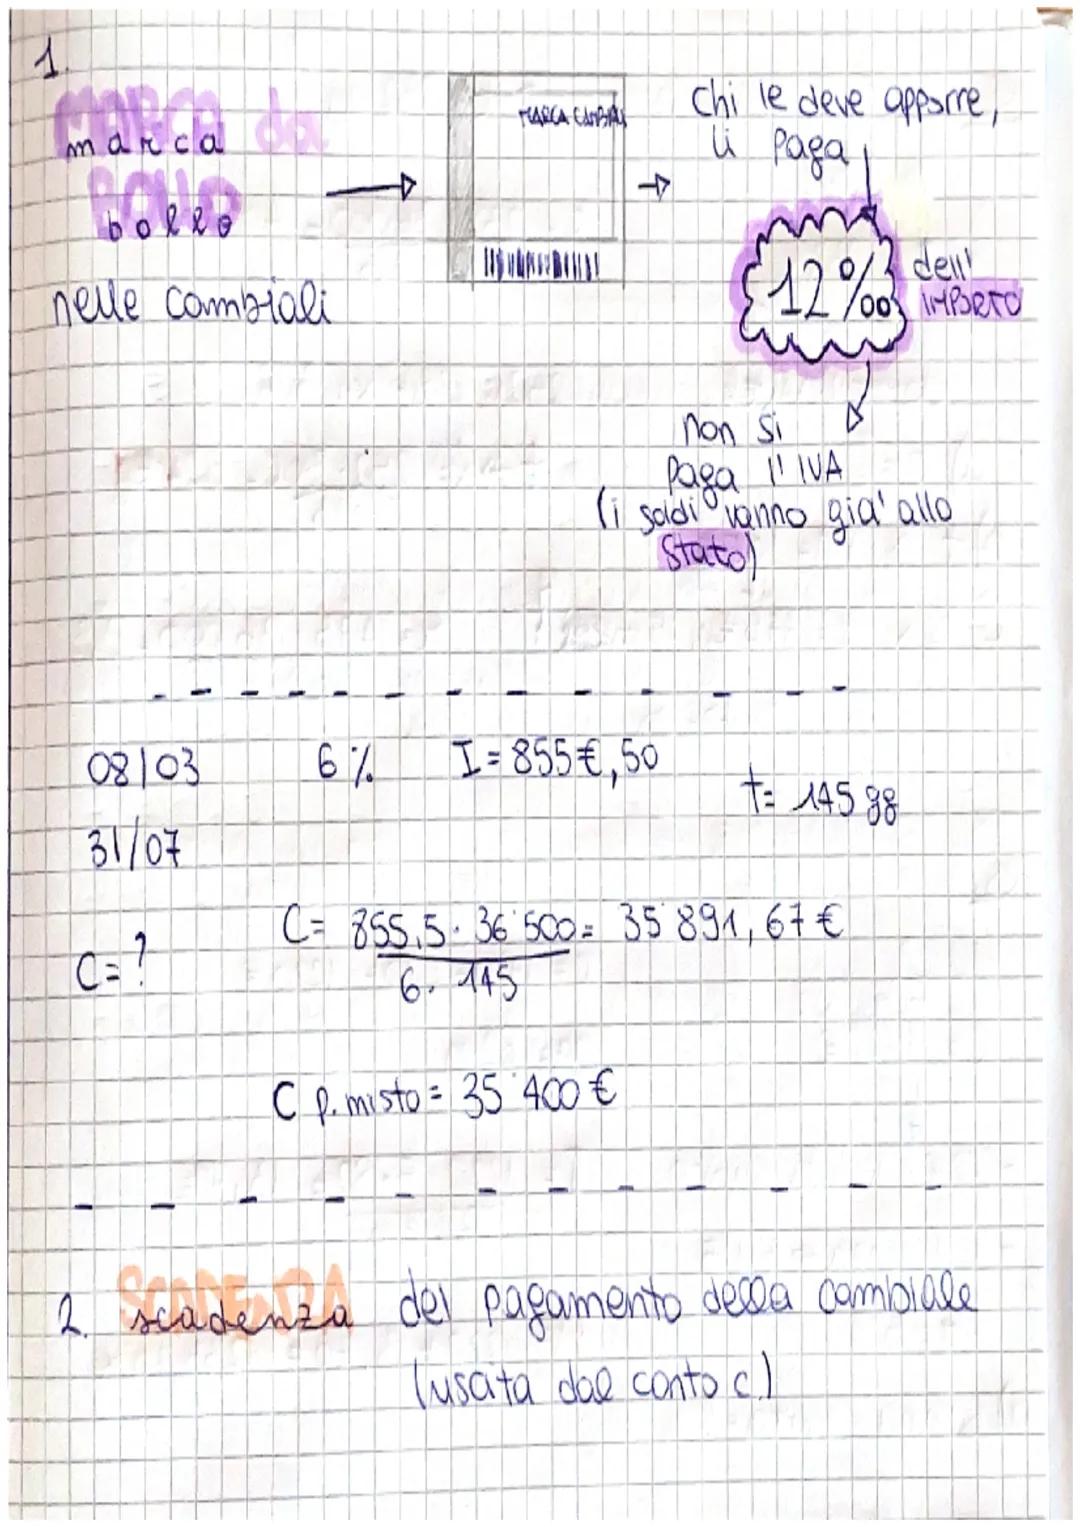 1.
marca da
bollo
nelle cambiali
MARCA CAMBIALI
Chi le deve apporre,
li paga
12‰ dell'
IMPORTO
non si
paga l'IVA
(i soldi vanno gia' allo
Stato)
08/03 6% I=855€,50
t= 145 gg
31/07
C=?
C= 855,5 · 36'500 = 35'891,67 €
6 · 145
C p. misto = 35'400 €
2. SCADENZA
scadenza del pagamento della cambiale
(usata dal conto c.)